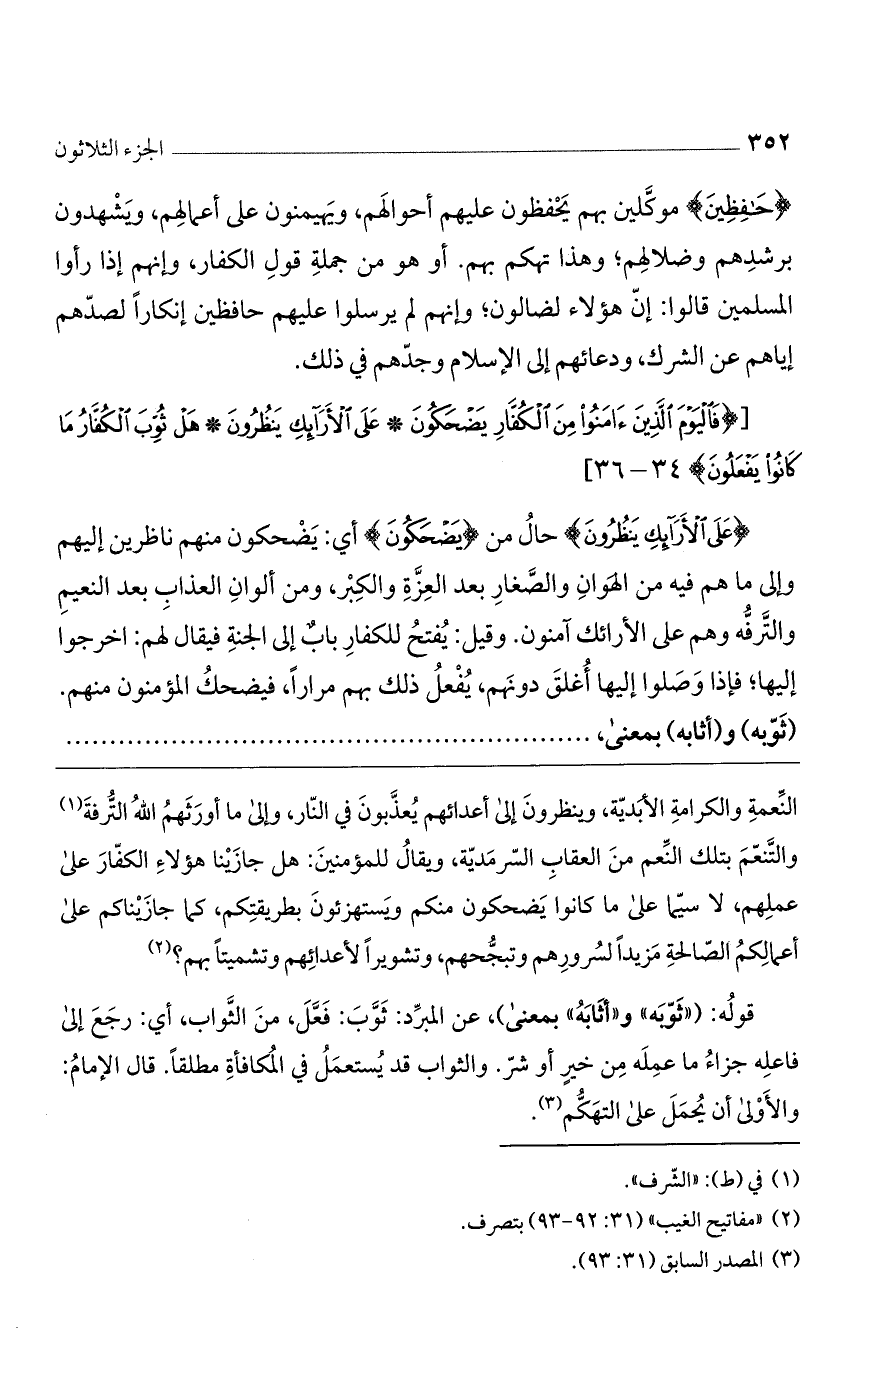 ٣٥٢ الجزء الثلاثون
﴿حَٰفِظِينَ﴾ موكَّلين بهم يَحْفظون عليهم أحوالَهم، ويَهيمنون على أعمالِهم، ويَشْهدون
برشدِهم وضلالِهم؛ وهذا تهكم بهم. أو هو من جملةِ قولِ الكفار، وإنهم إذا رأوا
المسلمين قالوا: إنّ هؤلاء لضالون؛ وإنهم لم يرسلوا عليهم حافظين إنكاراً لصدّهم
إياهم عن الشرك، ودعائهم إلى الإسلام وجدّهم في ذلك.
[﴿فَٱلْيَوْمَ ٱلَّذِينَ ءَامَنُوا۟ مِنَ ٱلْكُفَّارِ يَضْحَكُونَ * عَلَى ٱلْأَرَآئِكِ يَنظُرُونَ * هَلْ ثُوِّبَ ٱلْكُفَّارُ مَا
كَانُوا۟ يَفْعَلُونَ﴾ ٣٤ – ٣٦]
﴿عَلَى ٱلْأَرَآئِكِ يَنظُرُونَ﴾ حالُ من ﴿يَضْحَكُونَ﴾ أي: يَضْحكون منهم ناظرين إليهم
وإلى ما هم فيه من الهَوانِ والصَّغارِ بعد العِزَّةِ والكِبْر، ومن ألوانِ العذابِ بعد النعيمِ
والتَّرفُّه وهم على الأرائك آمنون. وقيل: يُفتحُ للكفارِ بابٌ إلى الجنةِ فيقال لهم: اخرجوا
إليها؛ فإذا وَصَلوا إليها أُغلقَ دونَهم، يُفْعلُ ذلك بهم مراراً، فيضحكُ المؤمنون منهم.
(ثَوّبه) و(أثابه) بمعنىٰ، ............................................................
النِّعمةِ والكرامةِ الأبَديّة، وينظرونَ إلىٰ أعدائهم يُعذَّبونَ في النّار، وإلىٰ ما أورَثَهمُ اللهُ التُّرفةَ(١)
والتَّنعّمَ بتلك النِّعم منَ العقابِ السّرمَديّة، ويقالُ للمؤمنينَ: هل جازَيْنا هؤلاءِ الكفّارَ علىٰ
عملِهم، لا سيّما علىٰ ما كانوا يَضحكون منكم ويَستهزئونَ بطريقتِكم، كما جازَيْناكم علىٰ
أعمالِكمُ الصّالحةِ مَزيداً لسُرورِهم وتبجُّحهم، وتشويراً لأعدائِهم وتشميتاً بهم؟(٢)
قولُه: («ثَوّبَه» و«أثابَهُ» بمعنىٰ)، عن المبرِّد: ثَوَّبَ: فَعَّلَ، منَ الثَّواب، أي: رجَعَ إلىٰ
فاعلِه جزاءُ ما عمِلَه مِن خيرٍ أو شرّ. والثواب قد يُستعمَلُ في المُكافأةِ مطلقاً. قال الإمامُ:
والأَوْلىٰ أن يُحمَلَ علىٰ التهَكُّم(٣).
(١) في (ط): «الشّرف».
(٢) «مفاتيح الغيب» (٣١: ٩٢-٩٣) بتصرف.
(٣) المصدر السابق (٣١: ٩٣).